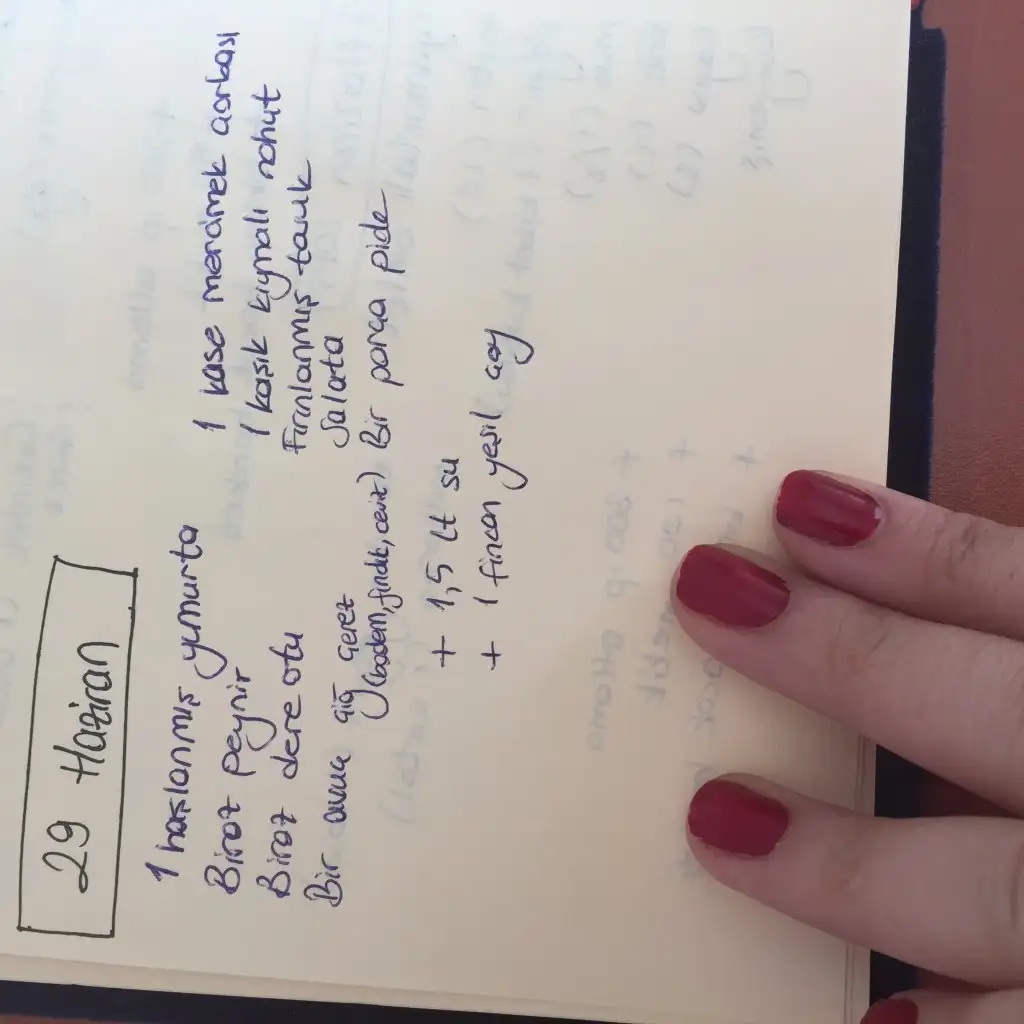 29 Haziran
1 haşlanmış yumurta
Biraz peynir
Biraz dere otu
Bir avuç çiğ çerez
(badem, fındık, ceviz)
1 kase mercimek çorbası
1 kaşık kıymalı nohut
Fırınlanmış tavuk
Salata
Bir parça pide
+ 1,5 lt su
+ 1 fincan yeşil çay